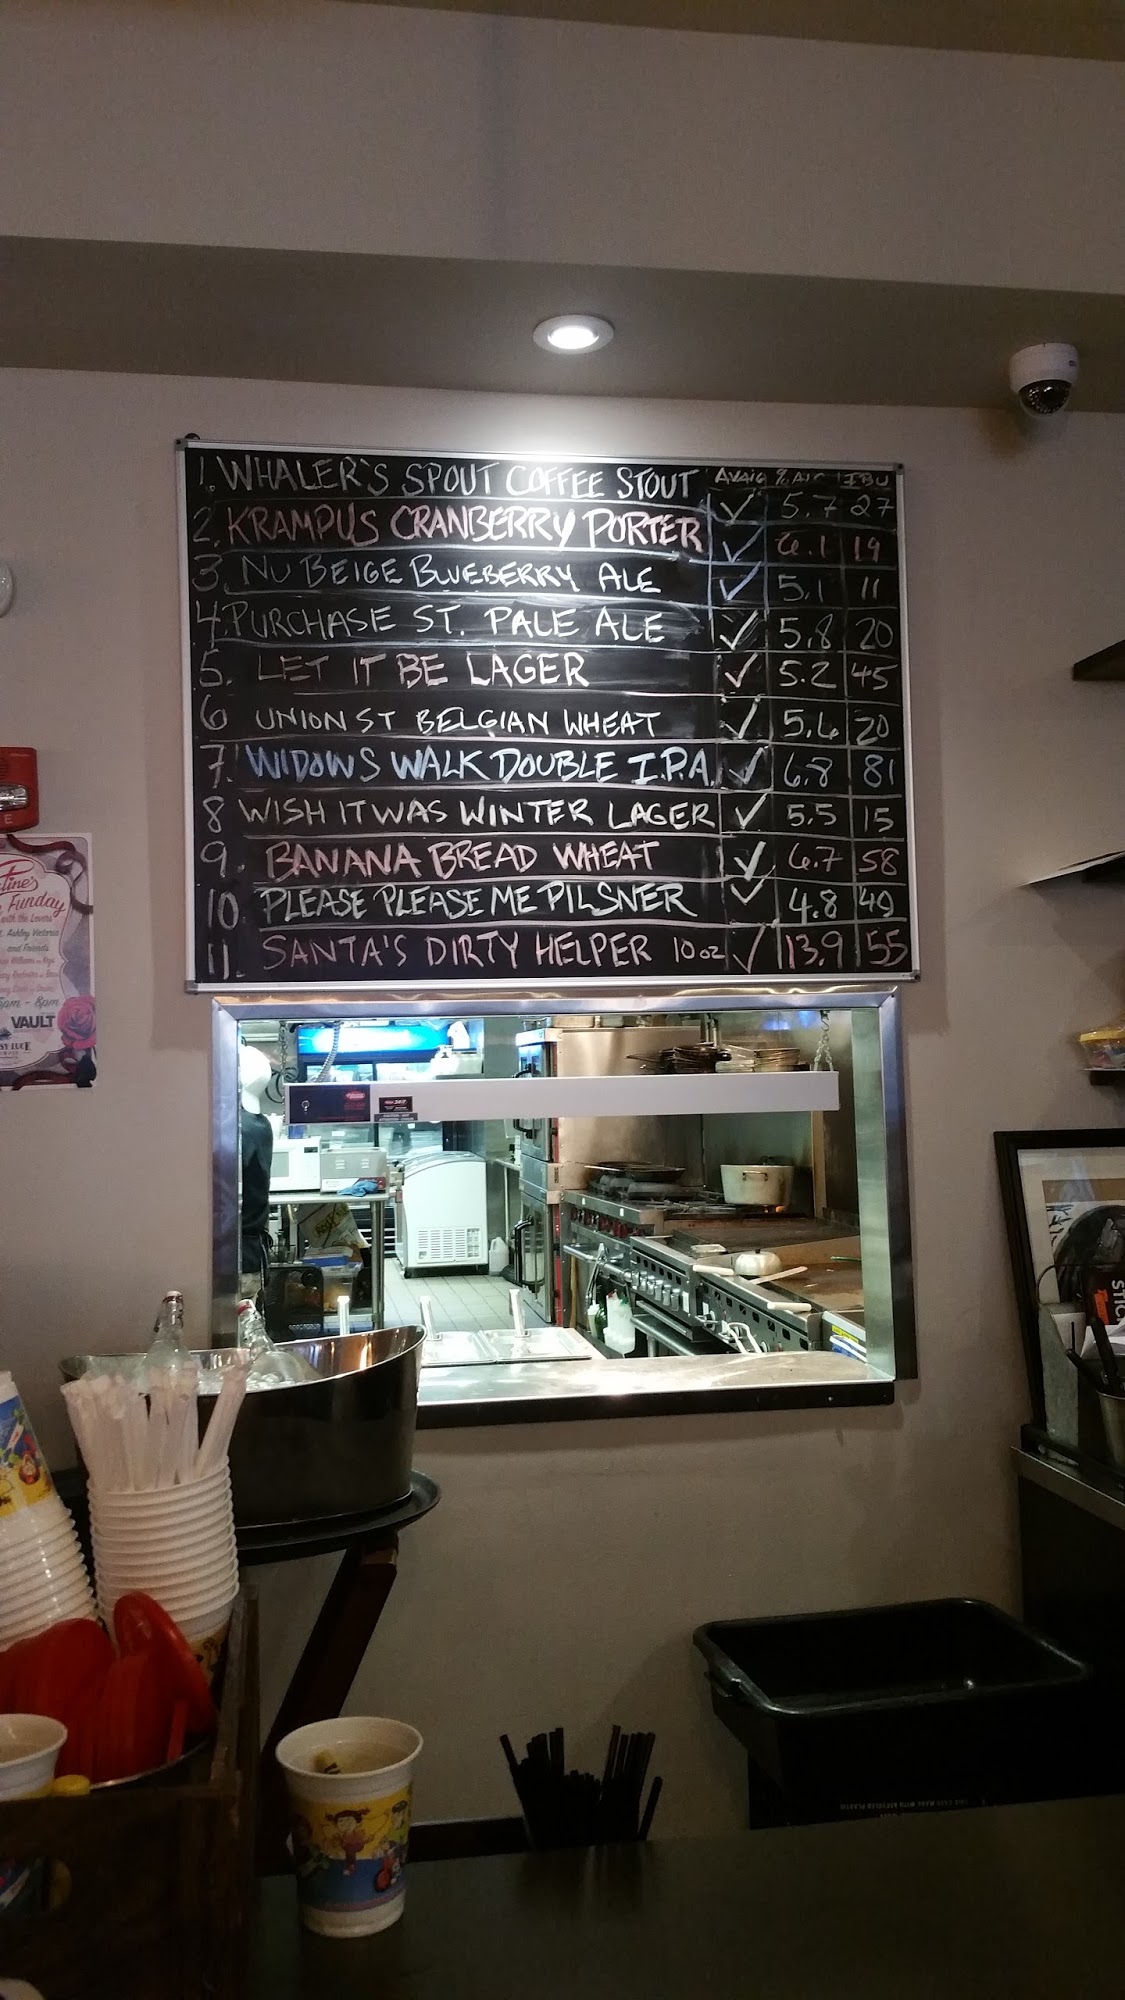 AVAIL % ALC IBU
1. WHALER'S SPOUT COFFEE STOUT ✓ 5.7 27
2. KRAMPUS CRANBERRY PORTER ✓ 6.1 19
3. NU BEIGE BLUEBERRY ALE ✓ 5.1 11
4. PURCHASE ST. PALE ALE ✓ 5.8 20
5. LET IT BE LAGER ✓ 5.2 45
6 UNION ST BELGIAN WHEAT ✓ 5.6 20
7. WIDOWS WALK DOUBLE I.P.A. ✓ 6.8 81
8 WISH IT WAS WINTER LAGER ✓ 5.5 15
9. BANANA BREAD WHEAT ✓ 6.7 58
10 PLEASE PLEASE ME PILSNER ✓ 4.8 49
11. SANTA'S DIRTY HELPER 10oz ✓ 13.9 55
tine's
Funday
with the Lovers
Ashley Victoria
and Friends
5pm - 8pm
VAULT
STIC